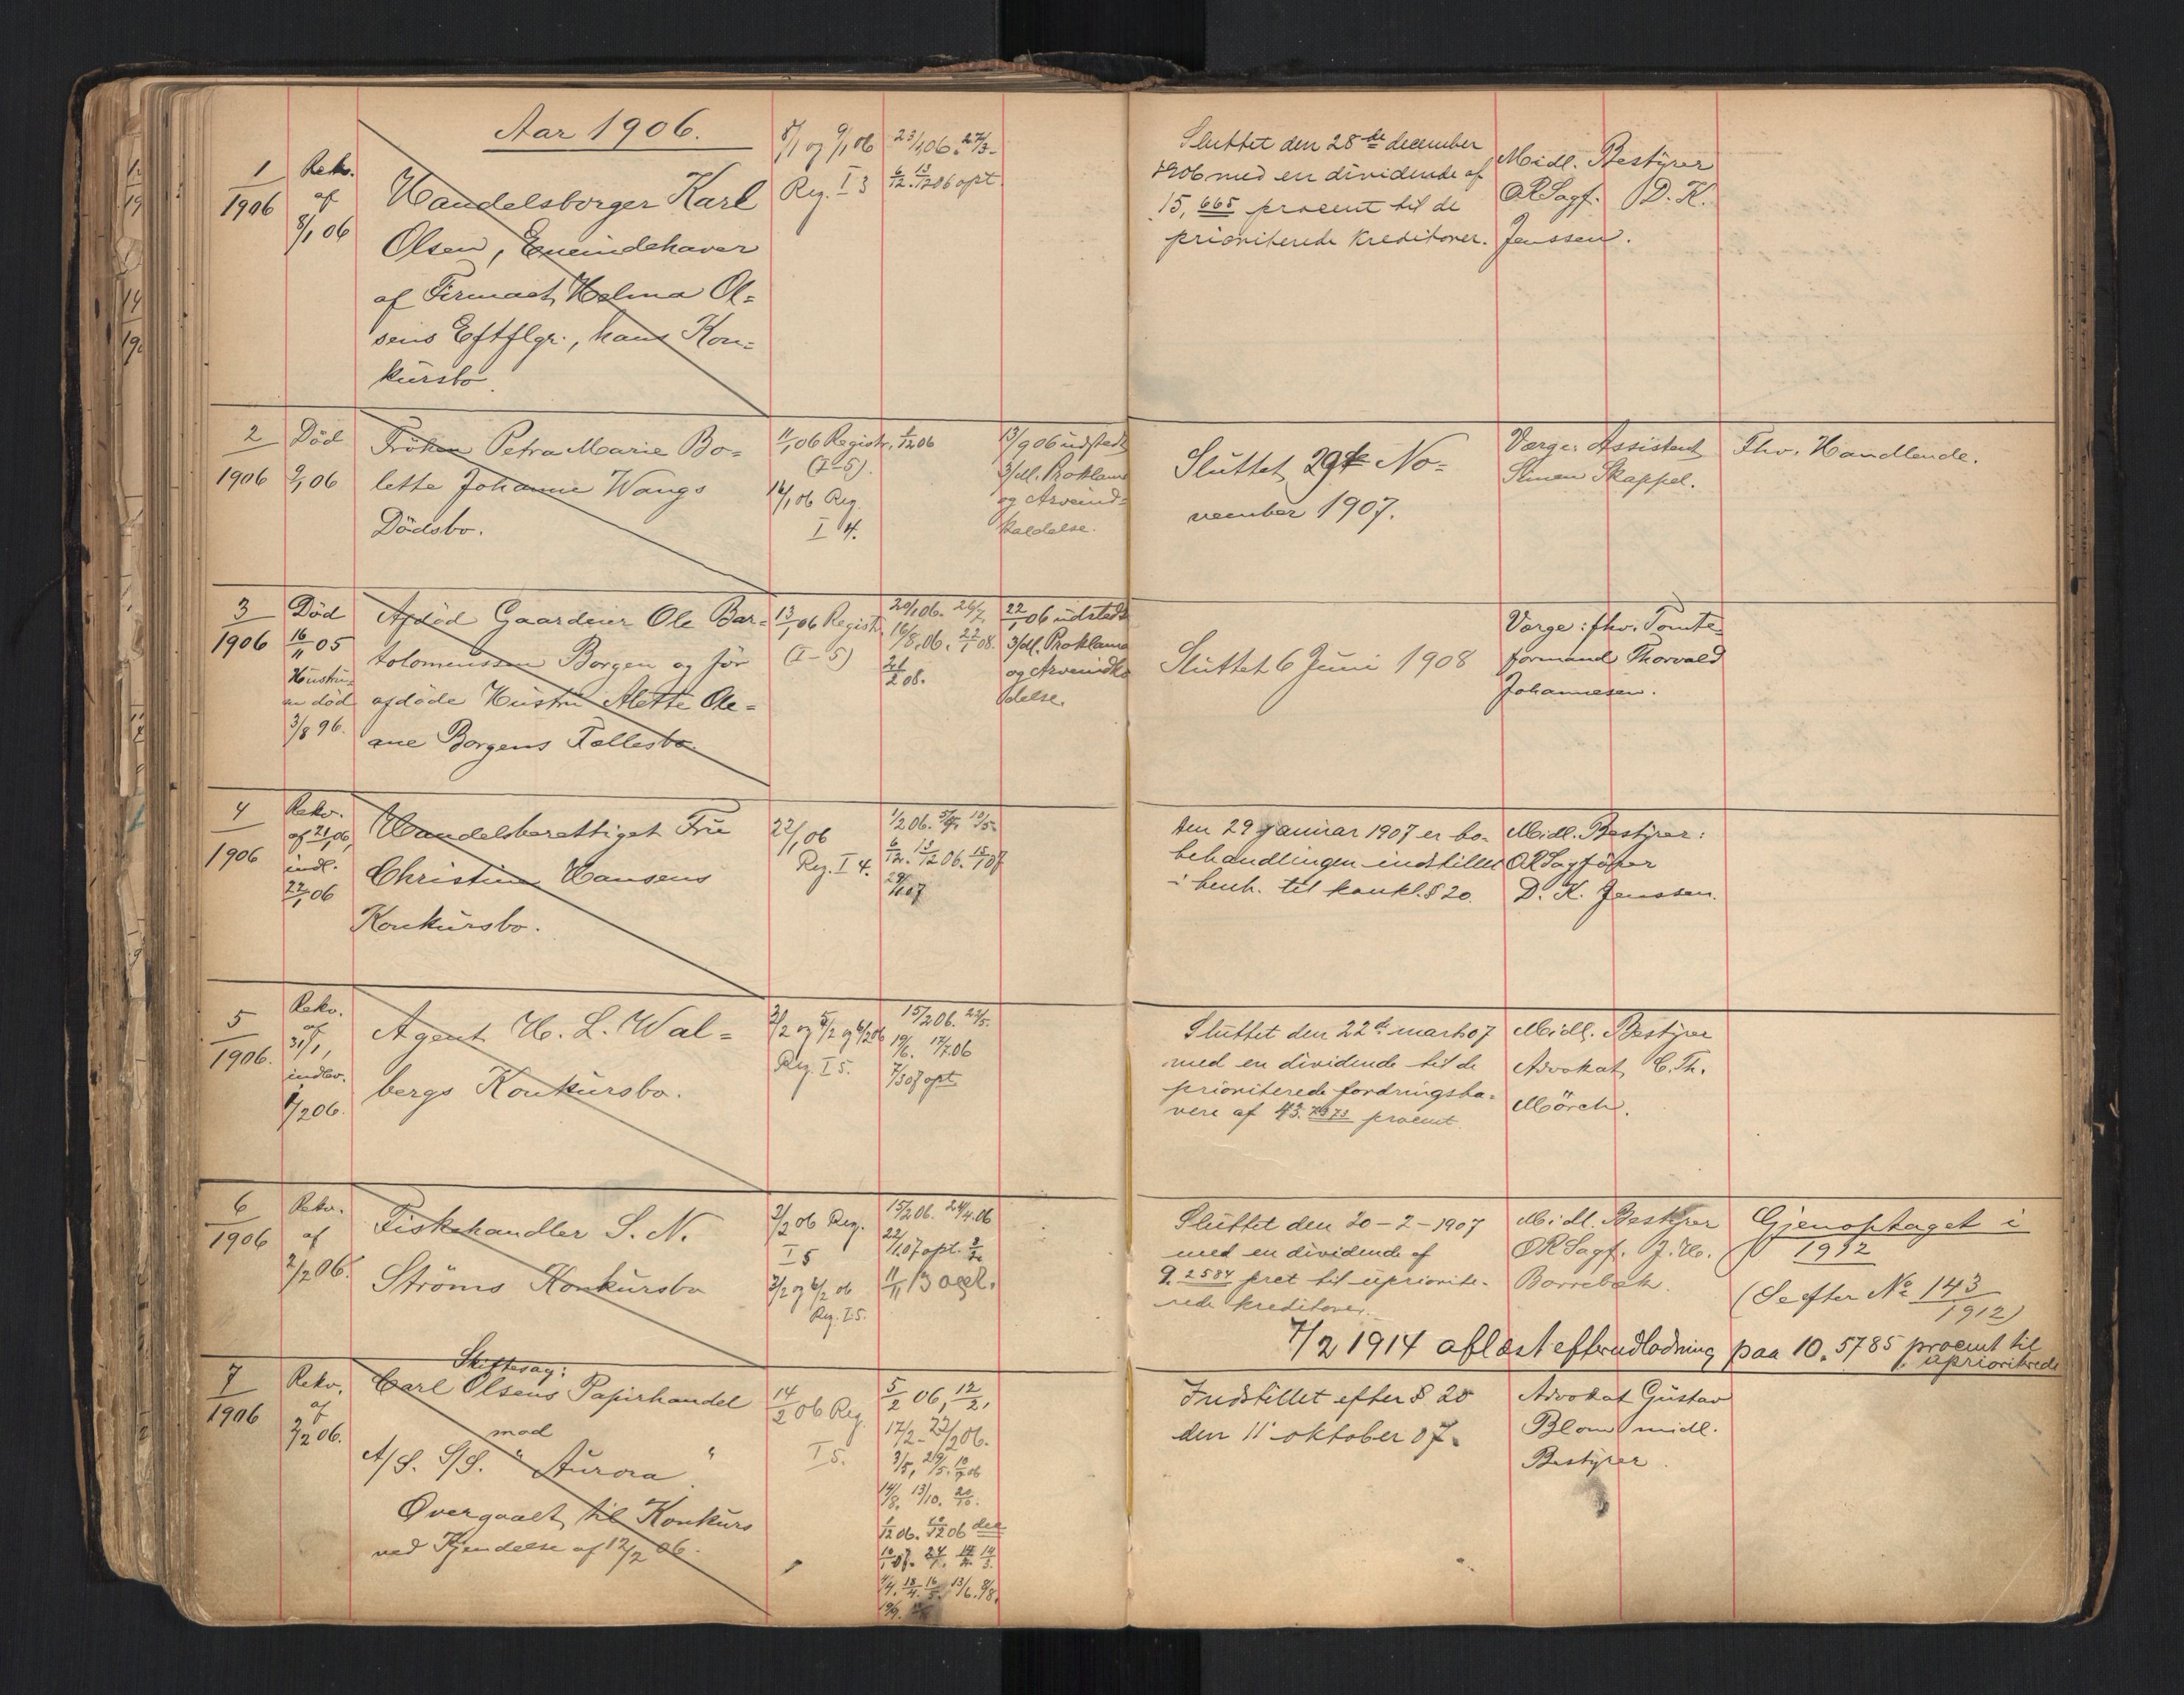 Aar 1906.
1
1906
Rekv.
af
8/1 06
Handelsborger Karl
Olsen, Eneindehaver
af Firmaet Helma Ol=
sens Eftflgr., hans Kon=
kursbo.
8/1 og 9/1 06
Reg. I 3
23/1 06. 27/3.
6/12. 13/12 06 opt.
Sluttet den 28de december
1906 med en dividende af
15,665 procent til de
prioriterede kreditorer.
Midl. Bestyrer
ORSagf. D. K.
Jenssen.
2
1906
Död
9/1 06
Fröken Petra Marie Bo=
lette Johanne Wangs
Dödsbo.
11/1 06 Registr.
(I-5).
16/1 06 Reg.
I 4.
1/12 06
13/9 06 udstedt
3/dl. Proklama
og Arveind=
kaldelse.
Sluttet 29de No=
vember 1907.
Værge: Assistent
Simen Skappel.
Thv. Handlende.
3
1906
Död
16/11 05
Hustru=
en död
3/8 96.
Afdöd Gaardeier Ole Bar=
tolomenssen Borgen og för
afdöde Hustru Alette Ole=
ane Borgens Fællesbo.
13/1 06 Registr.
(I-5)
20/1 06. 26/7.
16/8 06. 22/1 08.
21/2 08.
22/1 06 udstedt
3/dl. Proklama
og Arveindka
ldelse.
Sluttet 6 Juni 1908
Værge: fhv. Tomte=
formand Thorvald
Johannesen.
4
1906
Rekv.
af 21/1 06,
indl.
22/1 06
Handelsberettiget Frue
Christine Hansens
Konkursbo.
22/1 06
Reg. I 4.
1/2 06. 5/4. 10/5.
6/12. 13/12 06. 15/1 07
29/1 07
Den 29 januar 1907 er bo-
behandlingen indstillet
i henh. til konkl. § 20.
Midl. Bestyrer:
ORSagförer
D. K. Jenssen.
5
1906.
Rekv.
af
31/1,
indlev.
1/2 06.
Agent H. L. Wal=
bergs Konkursbo.
2/2 og 5/2 og 6/2 06
Reg. I 5.
15/2 06. 22/5.
19/6. 17/7 06
7/3 07 opt.
Sluttet den 22de marts 07
med en dividende til de
prioriterede fordringsha=
vere af 43.7373 procent.
Midl. Bestyrer
Advokat C. Th.
Mörch.
6
1906
Rekv.
af
2/2 06.
Fiskehandler S. N.
Ströms Konkursbo
2/2 06 Reg.
I 5
3/2 og 6/2 06
Reg. I 5.
15/2 06. 24/4 06
22/1 07 opt.
11/11 13 ogl.
Sluttet den 20-2-1907
med en dividende af
9.2584 prct til upriorite-
rede kreditorer.
Midl. Bestyrer
ORSagf. J. H.
Borrebæk.
Gjenoptaget i
1912
(Se efter No 143
1912)
7/2 1914 aflæst efterudlodning paa 10.5785 procent til
uprioriterede
7
1906
Rekv.
af
2/2 06.
Skiftesag:
Carl Olsens Papirhandel
mod
A/S. S/S. "Aurora"
Overgaaet til Konkurs
ved Kjendelse af 12/2 06.
14/2 06 Reg.
I 5.
5/2 06, 12/2,
17/2 - 22/2 06.
3/5, 29/5. 10/7 06
14/8. 13/10. 20/10.
1/12 06.
10/1 07.
4/4. 18/4. 16/5. 13/6. 8/8.
19/9.
Indstillet efter § 20
den 11 oktober 07.
Advokat Gustav
Blom midl.
Bestyrer.